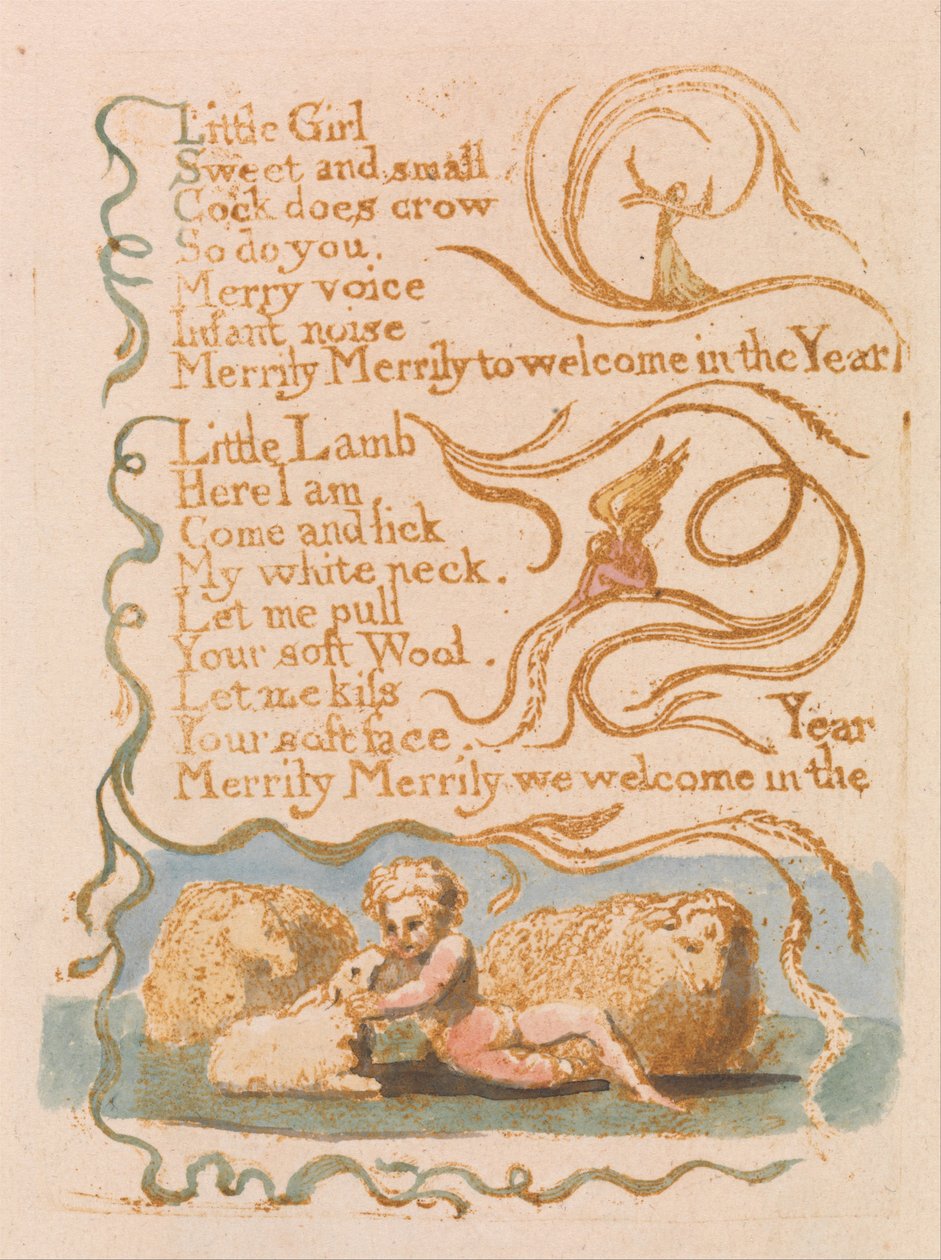 Little Girl
Sweet and small
Cock does crow
So do you.
Merry voice
Infant noise
Merrily Merrily to welcome in the Year
Little Lamb
Here I am,
Come and lick
My white neck.
Let me pull
Your soft Wool.
Let me kiſs
Your soft face.
Merrily Merrily we welcome in the
Year